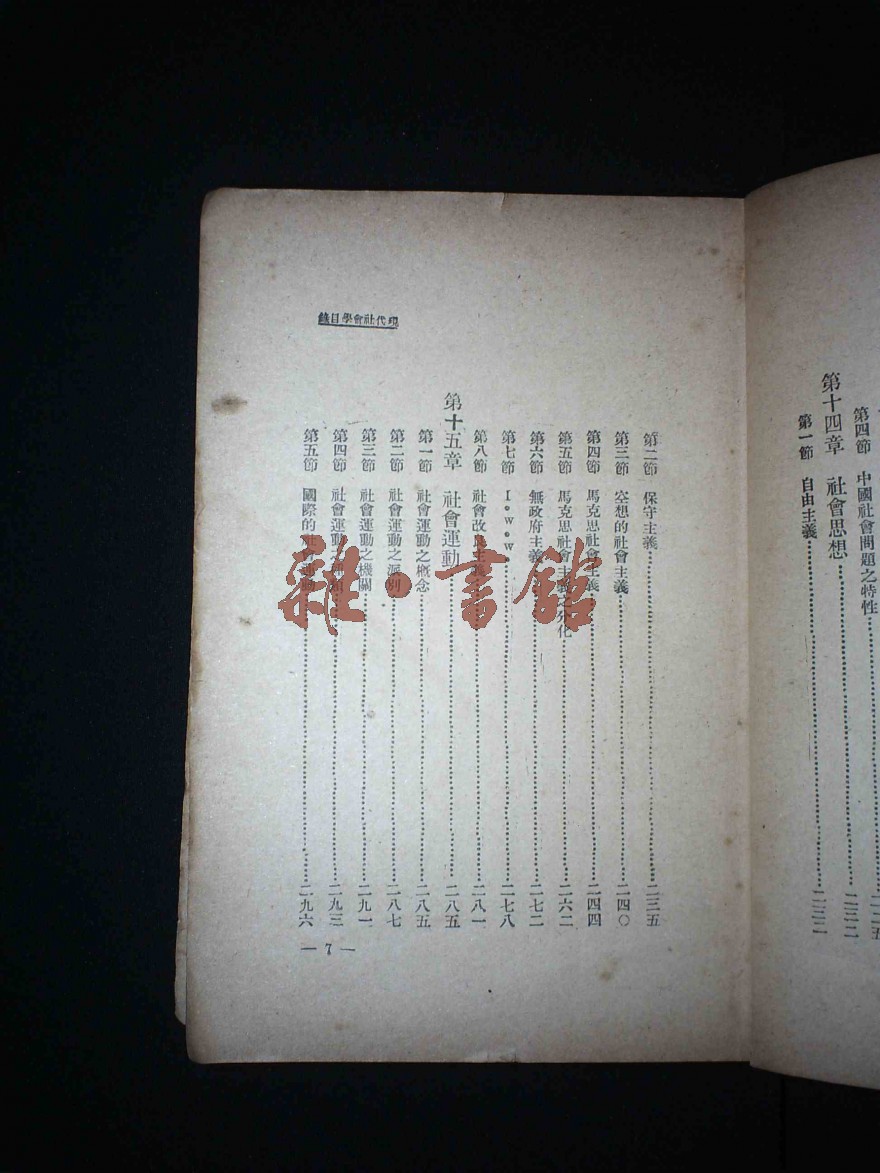 第四節 中國社會問題之特性
第十四章 社會思想……二三二
第一節 自由主義……二三二
現代社會學目錄
第二節 保守主義……二三五
第三節 空想的社會主義……二四〇
第四節 馬克思社會主義……二四四
第五節 馬克思社會主義之分化……二六二
第六節 無政府主義……二七二
第七節 I.W.W.……二七八
第八節 社會改良主義……二八一
第十五章 社會運動……二八五
第一節 社會運動之概念……二八五
第二節 社會運動之派別……二八七
第三節 社會運動之機關……二九一
第四節 社會運動之……二九三
第五節 國際的社會運動……二九六
— 7 —
雜·書館